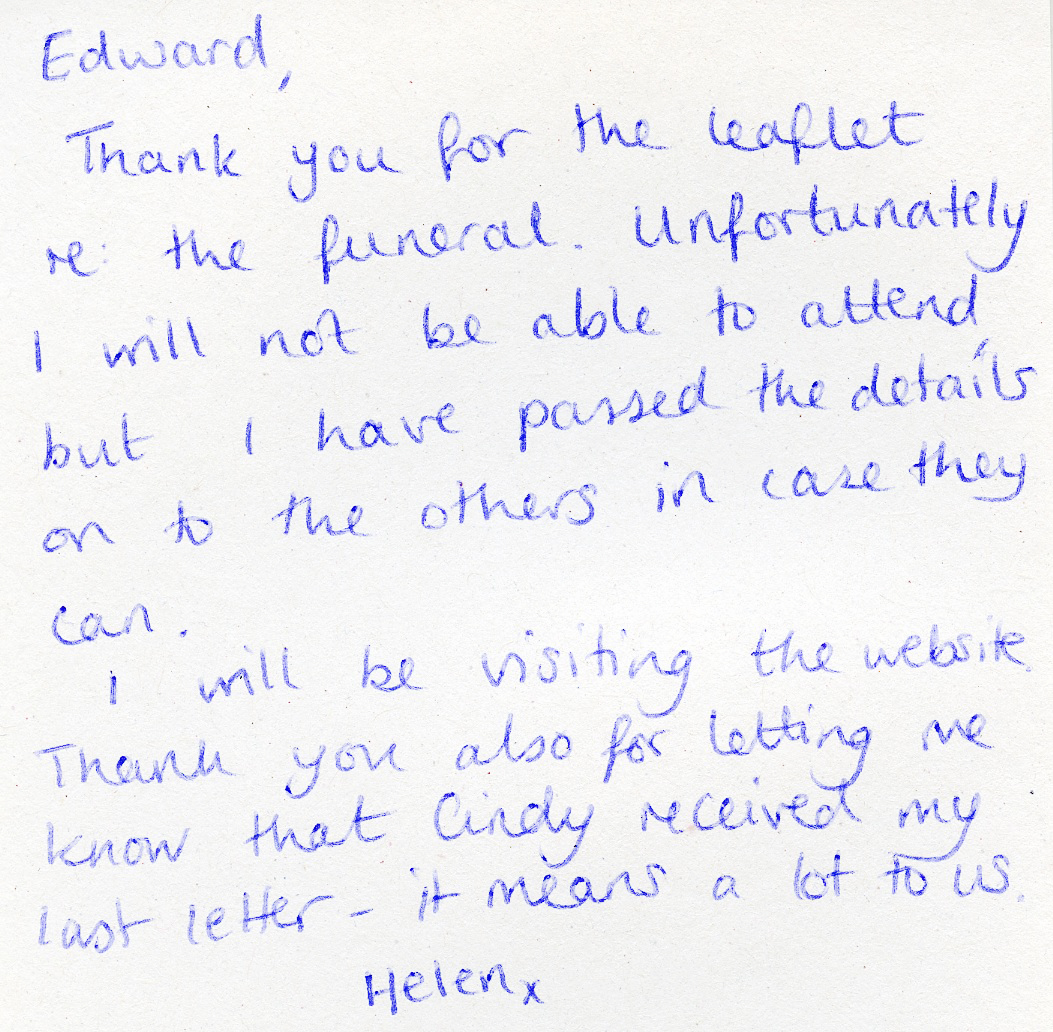 Edward,
Thank you for the leaflet
re: the funeral. Unfortunately
I will not be able to attend,
but I have passed the details
on to the others in case they
can.
I will be visiting the website.
Thank you also for letting me
know that Cindy received my
last letter - it means a lot to us.
Helen x